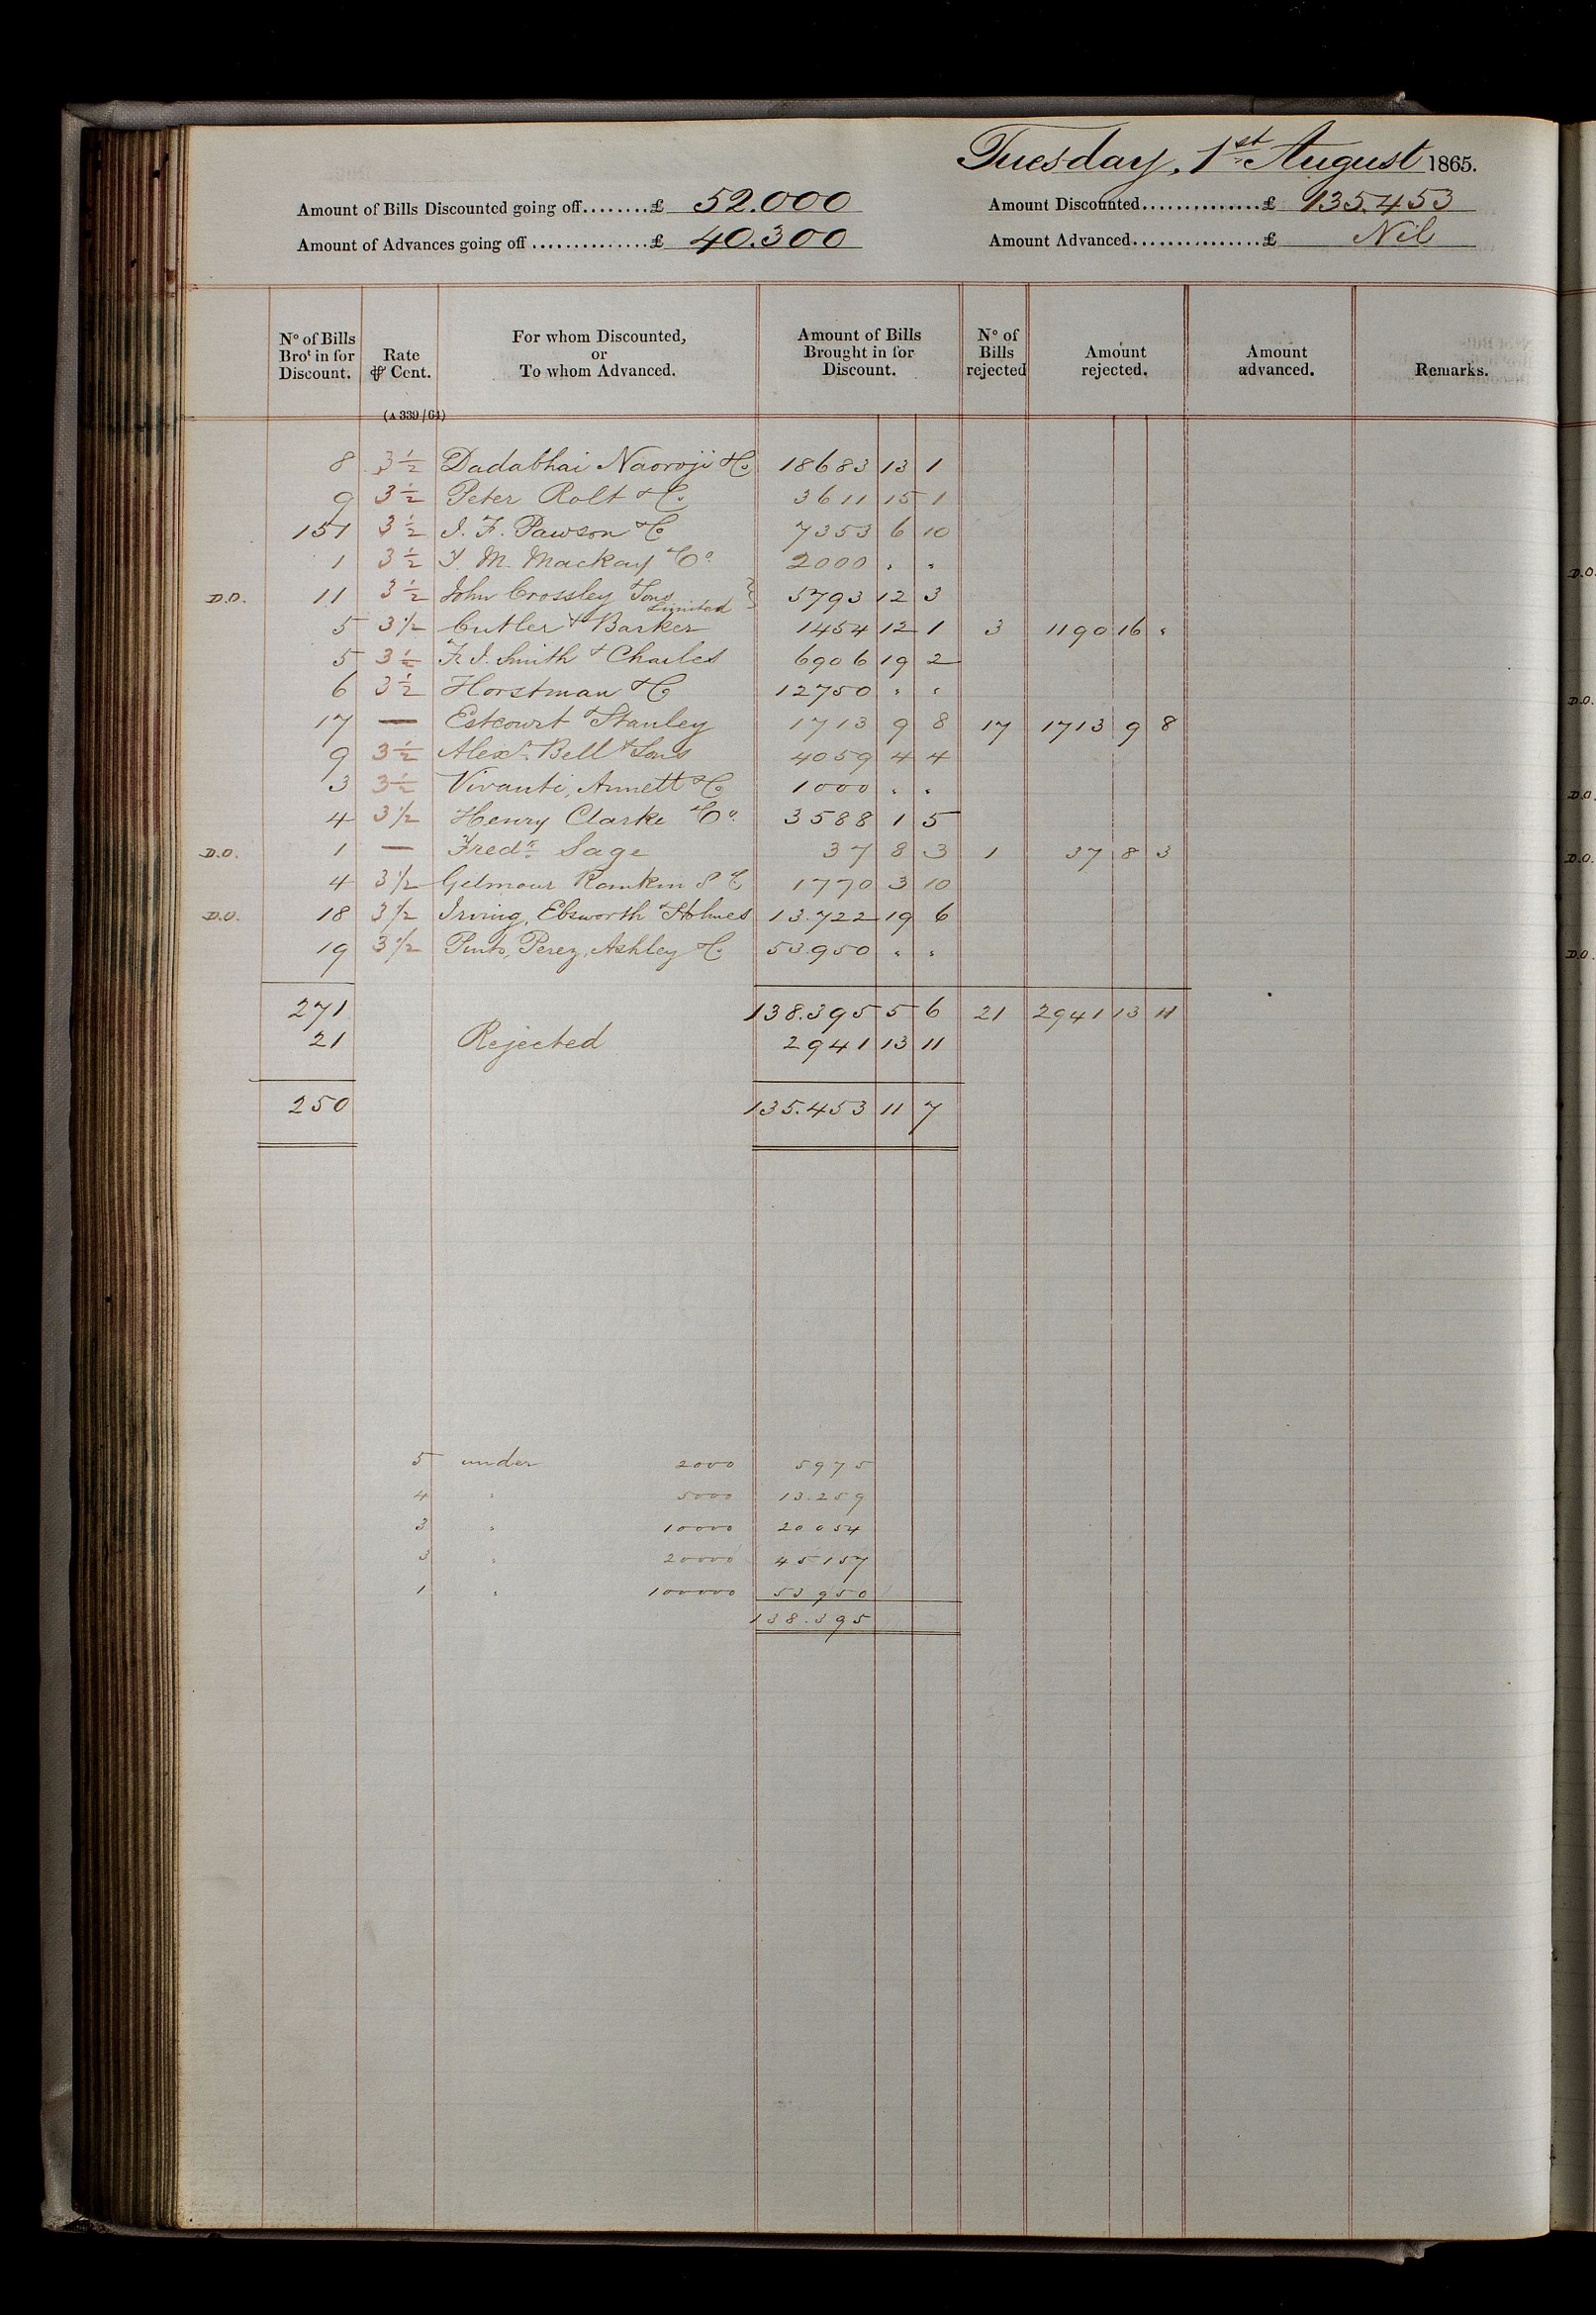 Tuesday, 1st August 1865.
Amount of Bills Discounted going off........£ 52.000 Amount Discounted..............£ 135.453
Amount of Advances going off..............£ 40.300 Amount Advanced................£ Nil
No of Bills Brot in for Discount. Rate ⅌ Cent. For whom Discounted, or To whom Advanced. Amount of Bills Brought in for Discount. No of Bills rejected Amount rejected. Amount advanced. Remarks.
(A 339/64)
8 3½ Dadabhai Naoroji & Co 18683 13 1
9 3½ Peter Rolt & Co 3611 15 1
151 3½ J. F. Pawson & Co 7353 6 10
1 3½ T. M. Mackay & Co 2000 " "
D.O. 11 3½ John Crossley & Sons Limited } 5793 12 3
5 3½ Cutler & Barker 1454 12 1 3 1190 16 "
5 3½ F. J. Smith & Charles 6906 19 2
6 3½ Horstman & Co 12750 " "
17 — Estcourt & Stanley 1713 9 8 17 1713 9 8
9 3½ Alexr Bell & Sons 4059 4 4
3 3½ Vivanti, Annett & Co 1000 " "
4 3½ Henry Clarke & Co 3588 1 5
D.O. 1 — Fredk Sage 37 8 3 1 37 8 3
4 3½ Gilmour Rankin S & Co 1770 3 10
D.O. 18 3½ Irving, Ebsworth & Holmes 13.722 19 6
19 3½ Pinto, Perez, Ashley & Co 53.950 " "
271 138.395 5 6 21 2941 13 11
21 Rejected 2941 13 11
250 135.453 11 7
5 under 2000 5975
4 " 5000 13.259
3 " 10000 20054
3 " 20000 45157
1 " 100000 53950
138.395
D.O.
D.O.
D.O.
D.O.
D.O.